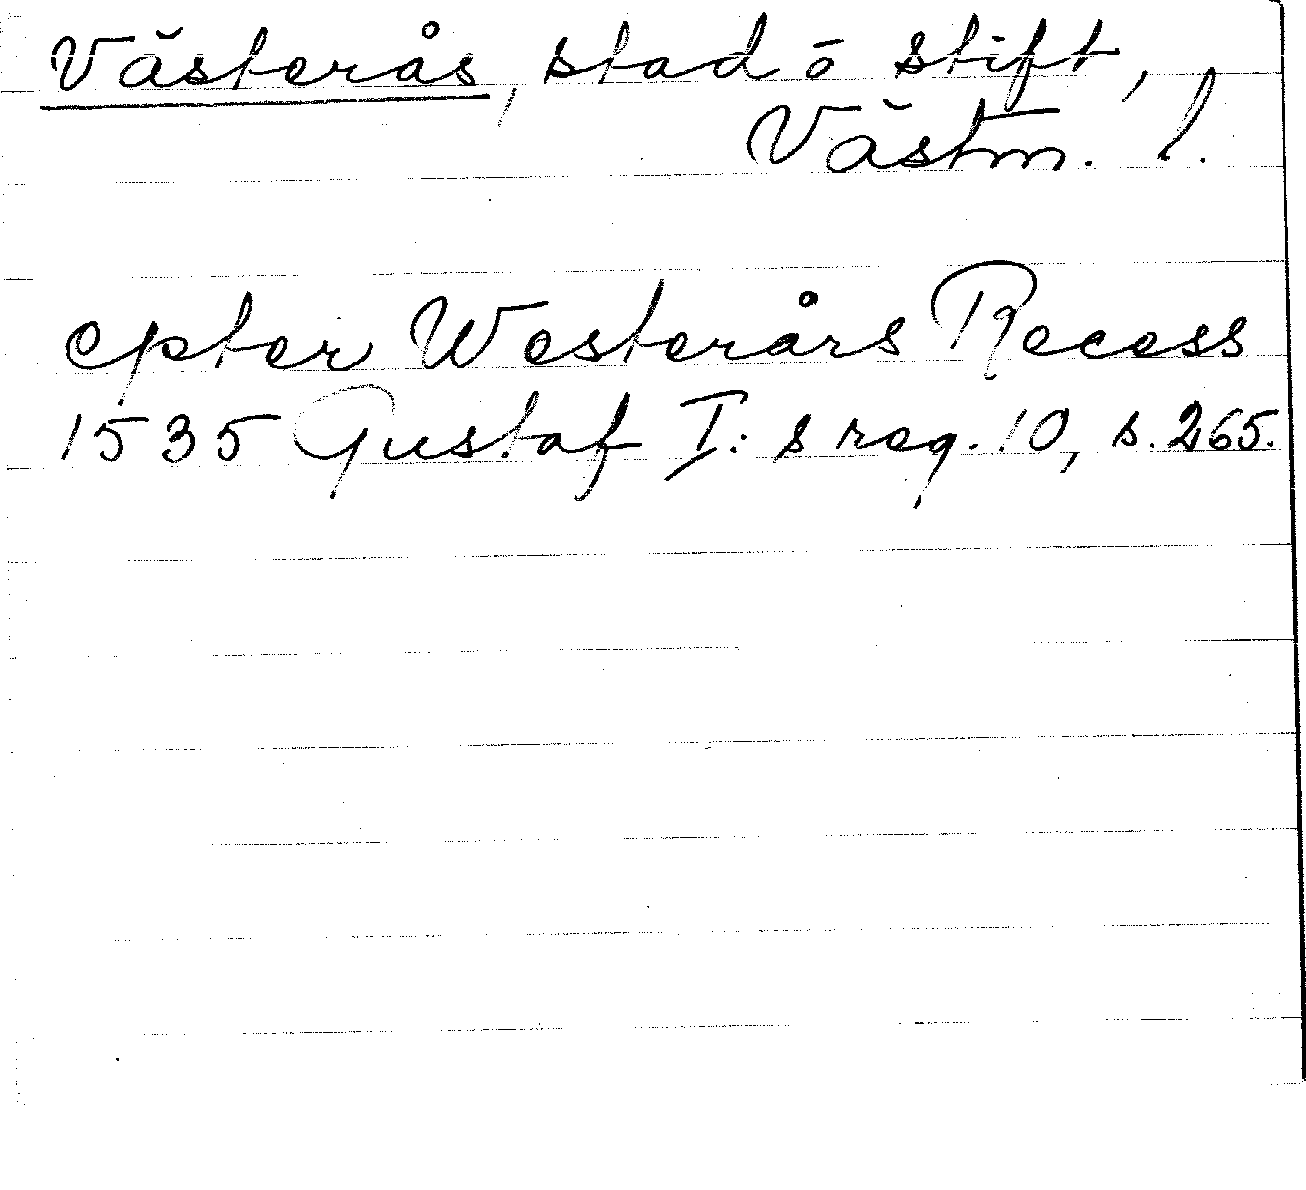 Västerås, stad ō stift,
Västm. l.
epter Westerårs Recess
1535 Gustaf I: s reg. 10, s. 265.